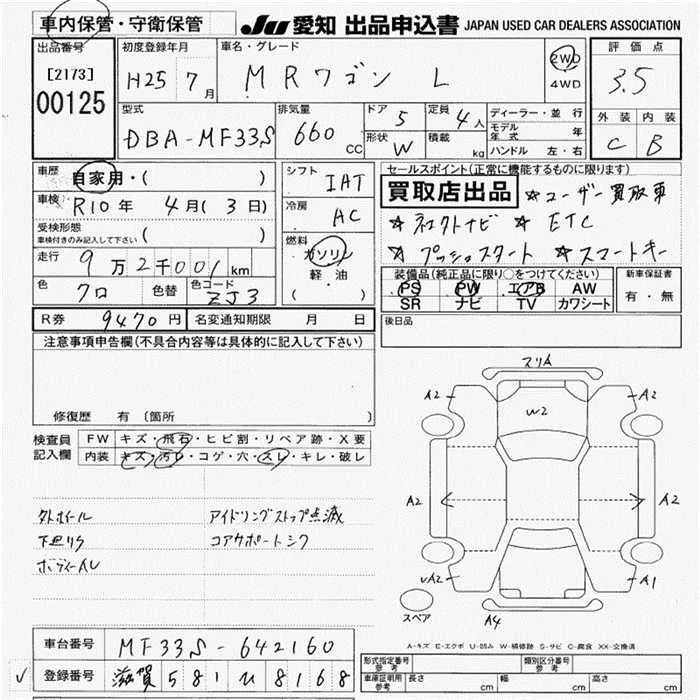 車内保管・守衛保管
JU 愛知 出品申込書 JAPAN USED CAR DEALERS ASSOCIATION
出品番号
[2173]
00125
初度登録年月
H25 7月
車名・グレード
MRワゴン L
2WD
4WD
評価点
3.5
外装 内装
C B
型式
DBA-MF33S
排気量
660 CC
ドア 5
形状 W
定員 4人
積載 kg
ディーラー・並行
モデル年式 年
ハンドル 左・右
車歴
自家用・( )
車検
R10年 4月(3日)
受検形態
車検付きのみ記入して下さい ( )
走行
9万2千001km
色 クロ 色替 色コード ZJ3
シフト IAT
冷房 AC
燃料
ガソリン
軽・油
( )
セールスポイント(正常に機能するものに限ります)
買取店出品 ☆ユーザー買取車
☆ネコクトナビ ☆ETC
☆プッシュスタート ☆スマートキー
装備品(純正品に限り○をつけてください)
PS PW エアB AW
SR ナビ TV カワシート
新車保証書
有・無
R券 9470円 名変通知期限 月 日
後日品
注意事項申告欄(不具合内容等は具体的に記入して下さい)
修復歴 有〔箇所 〕
検査員記入欄
FW キズ・飛石・ヒビ割・リペア跡・X要
内装 キズ・汚レ・コゲ・穴・スレ・キレ・破レ
外ホイール アイドリングストップ点滅
下廻りS コアサポートシワ
ボディーAU
スリA
A2 A2
W2
A2 A2
UA2 A1
スペア
A4
A-キズ E-エクボ U-凹み W-補修跡 S-サビ C-腐食 XX-交換済
車台番号 MF33S-642160
登録番号 滋賀 581 ひ 8168
形式指定番号 参考
類別区分番号 参考
車庫証明用 参考 長さ cm 幅 cm 高さ cm